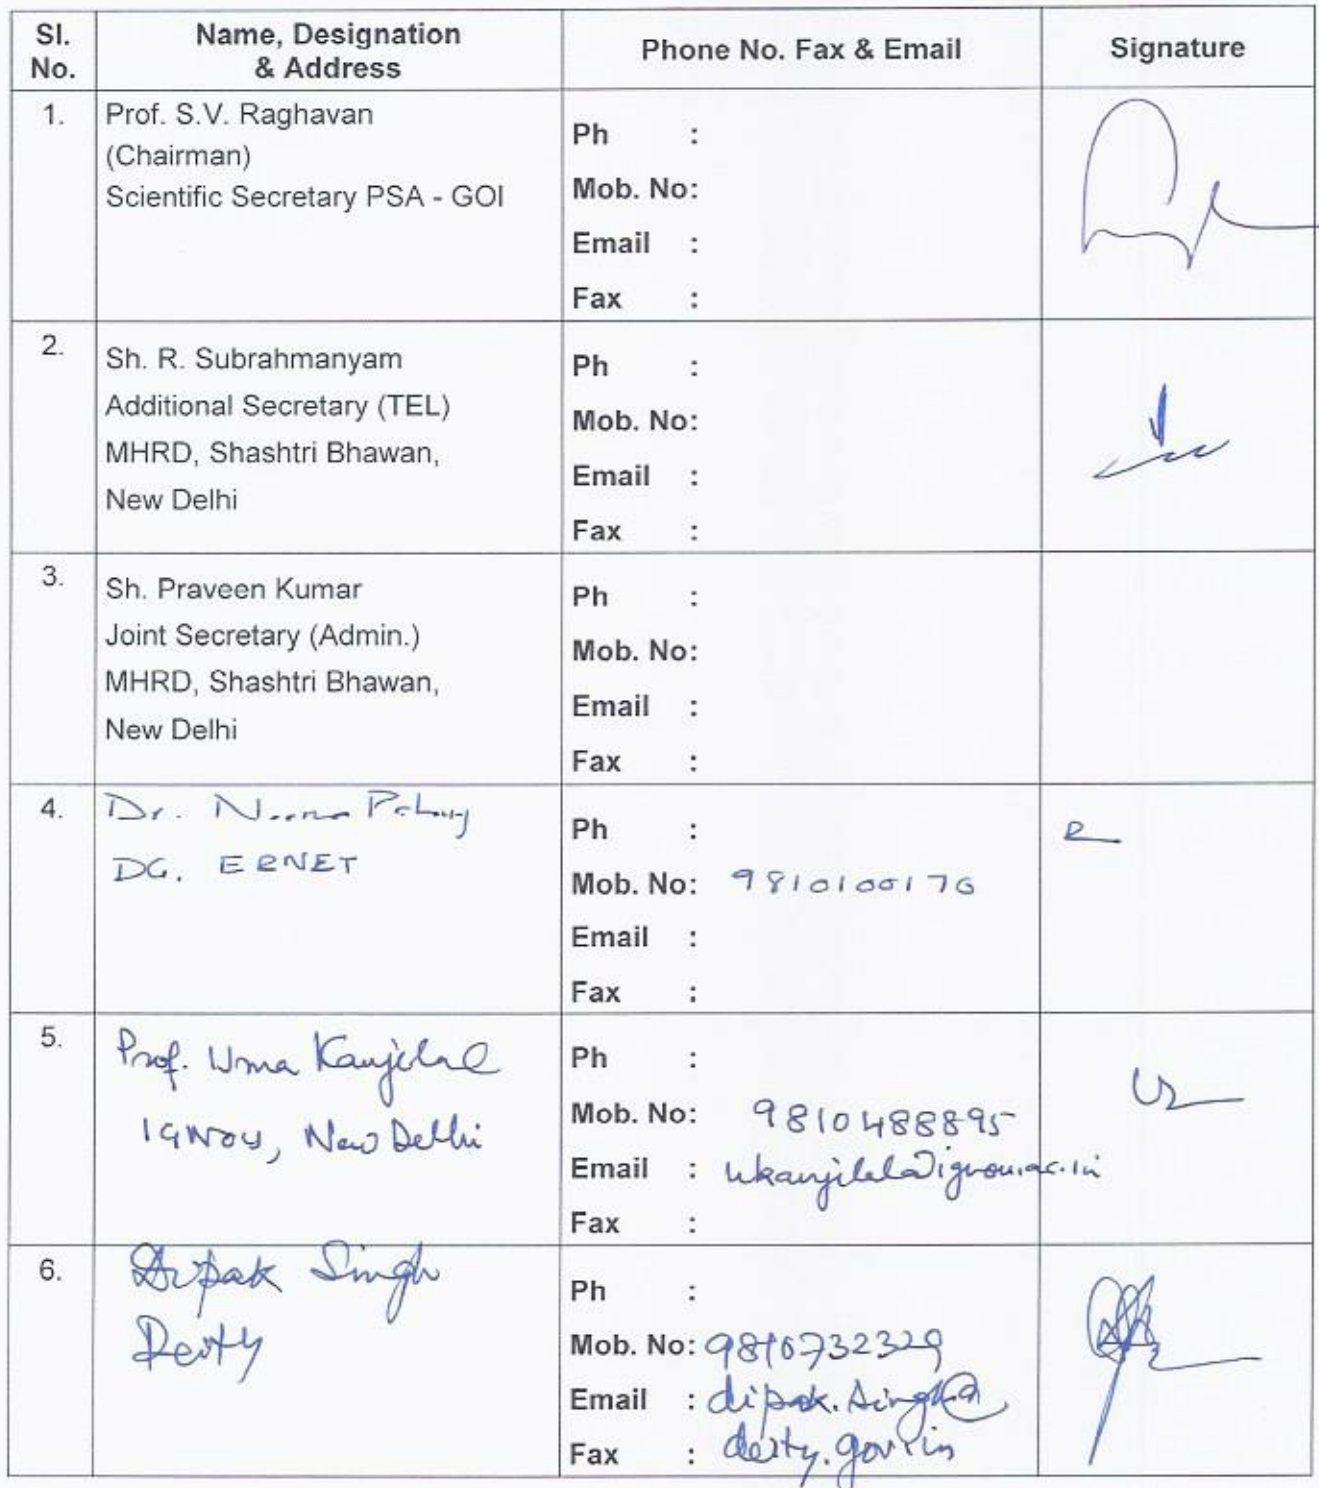 Sl. No.
Name, Designation & Address
Phone No. Fax & Email
Signature
1.
Prof. S.V. Raghavan
(Chairman)
Scientific Secretary PSA - GOI
Ph :
Mob. No:
Email :
Fax :
2.
Sh. R. Subrahmanyam
Additional Secretary (TEL)
MHRD, Shashtri Bhawan,
New Delhi
Ph :
Mob. No:
Email :
Fax :
3.
Sh. Praveen Kumar
Joint Secretary (Admin.)
MHRD, Shashtri Bhawan,
New Delhi
Ph :
Mob. No:
Email :
Fax :
4.
Dr. Neena Pahuj
DG. ERNET
Ph :
Mob. No: 9810100170
Email :
Fax :
5.
Prof. Uma Kanjilal
IGNOU, New Delhi
Ph :
Mob. No: 9810488895
Email : ukanjilal@ignou.ac.in
Fax :
6.
Dipak Singh
Deity
Ph :
Mob. No: 9810732329
Email : dipak.singh@
Fax : deity.gov.in